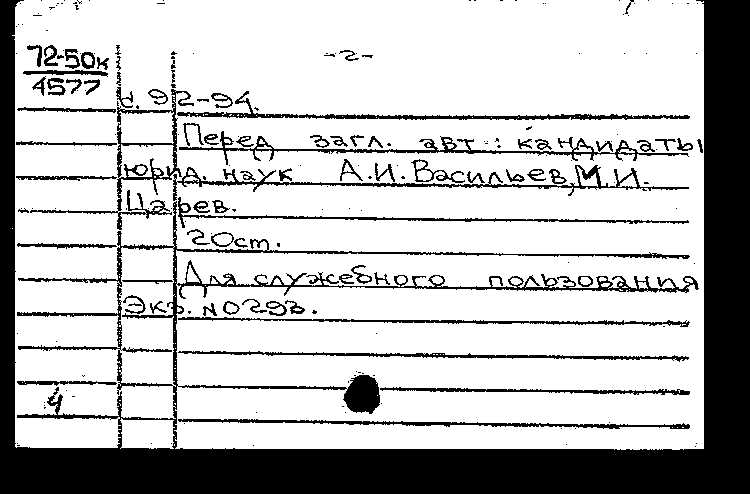 72-50к
4577
-2-
с. 92-94.
Перед загл. авт.: кандидаты
юрид. наук А.И. Васильев, М.И.
Царев.
20см.
Для служебного пользования
Экз. № 0293.
4